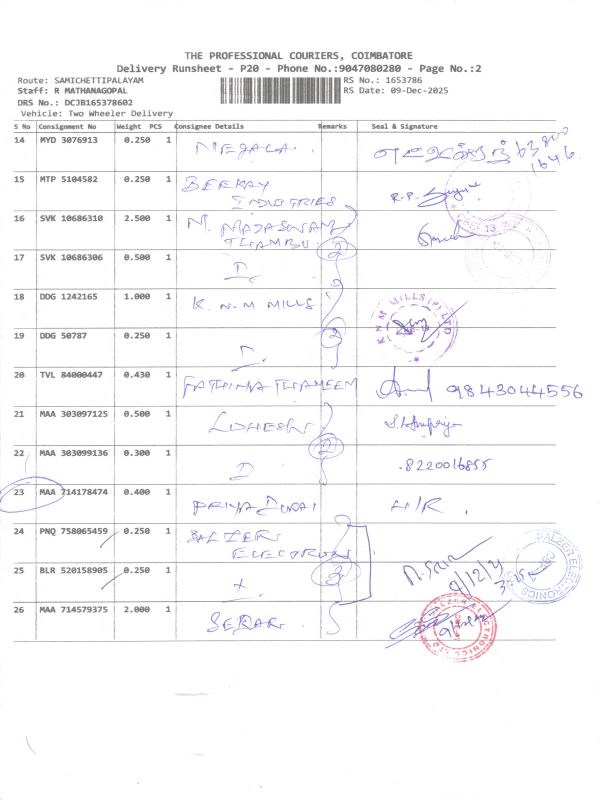 THE PROFESSIONAL COURIERS, COIMBATORE
Delivery Runsheet - P20 - Phone No.:9047080280 - Page No.:2
Route: SAMICHETTIPALAYAM RS No.: 1653786
Staff: R MATHANAGOPAL RS Date: 09-Dec-2025
DRS No.: DCJB165378602
Vehicle: Two Wheeler Delivery
S No Consignment No Weight PCS Consignee Details Remarks Seal & Signature
14 MYD 3076913 0.250 1 MEGALA
1646
15 MTP 5104582 0.250 1 BEEKAY R.P.
INDUSTRIES
16 SVK 10686310 2.500 1 M.
THAMBU 2
17 SVK 10686306 0.500 1 D
18 DDG 1242165 1.000 1 K.N.M MILLS K N M MILLS (P) LTD
19 DDG 50787 0.250 1 D 2
20 TVL 84000447 0.430 1 FATHIMA THAMEEM 9843044556
21 MAA 303097125 0.500 1
22 MAA 303099136 0.300 1 D 2 8220016855
23 MAA 714178474 0.400 1 PRIYA DURAI H/R
24 PNQ 758065459 0.250 1 SALZER
ELECTRONICS SALZER ELECTRONICS
25 BLR 520158905 0.250 1 3 9/12/25
26 MAA 714579375 2.000 1 SEKAR